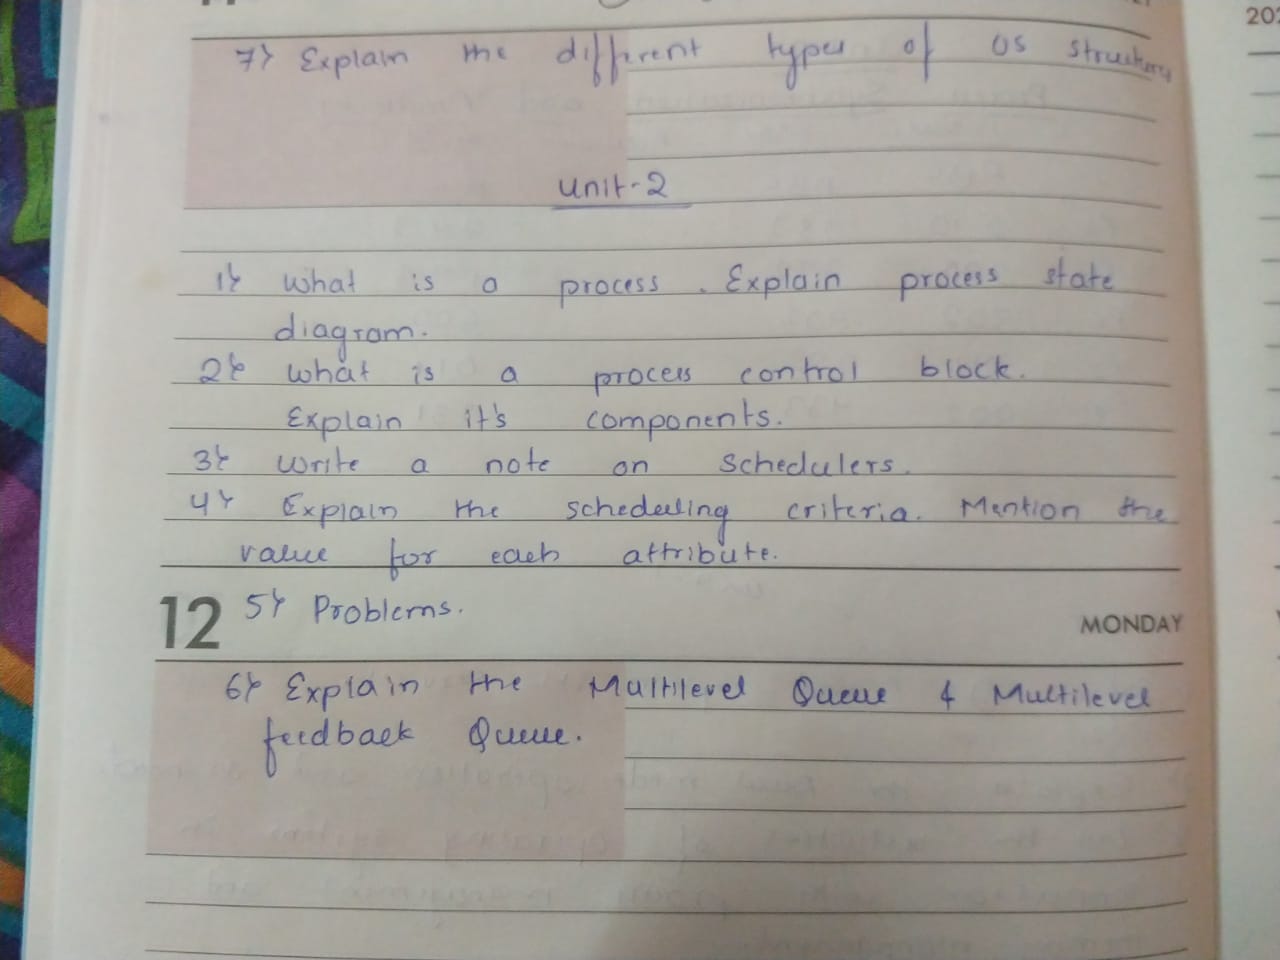 7) Explain the different types of OS structures
Unit-2
1) What is a process. Explain process state
diagram.
2) What is a process control block.
Explain it's components.
3) Write a note on schedulers.
4) Explain the scheduling criteria. Mention the
value for each attribute.
12 5) Problems.
MONDAY
6) Explain the Multilevel Queue & Multilevel
feedback Queue.